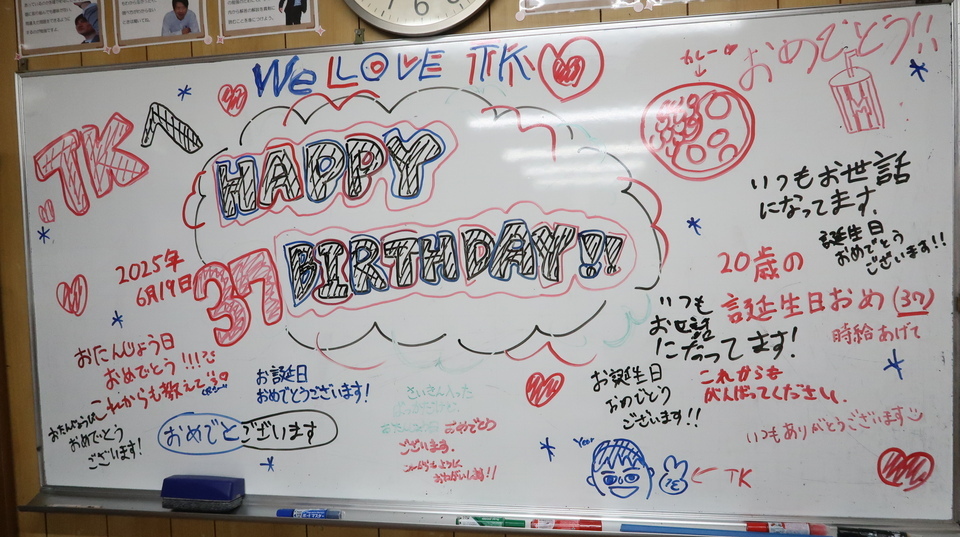 We LOVE TK
カレー
おめでとう!!
TKへ
HAPPY
BIRTHDAY!!
37
2025年
6月19日
M
いつもお世話
になってます.
誕生日
おめでとう
ございます!!
20歳の
誕生日おめ(37)
時給あげて
いつも
お世話
になってます!
これからも
がんばってください.
おたんじょう日
おめでとう!!!
これからも教えて
おたんじょうび
おめでとう
ございます!
お誕生日
おめでとうございます!
おめでとございます
さいきん入った
おめでとう
ございます.
これからもよろしく
おねがいします!!
お誕生日
おめでとう
ございます!!
いつもありがとうございます
Year
TK